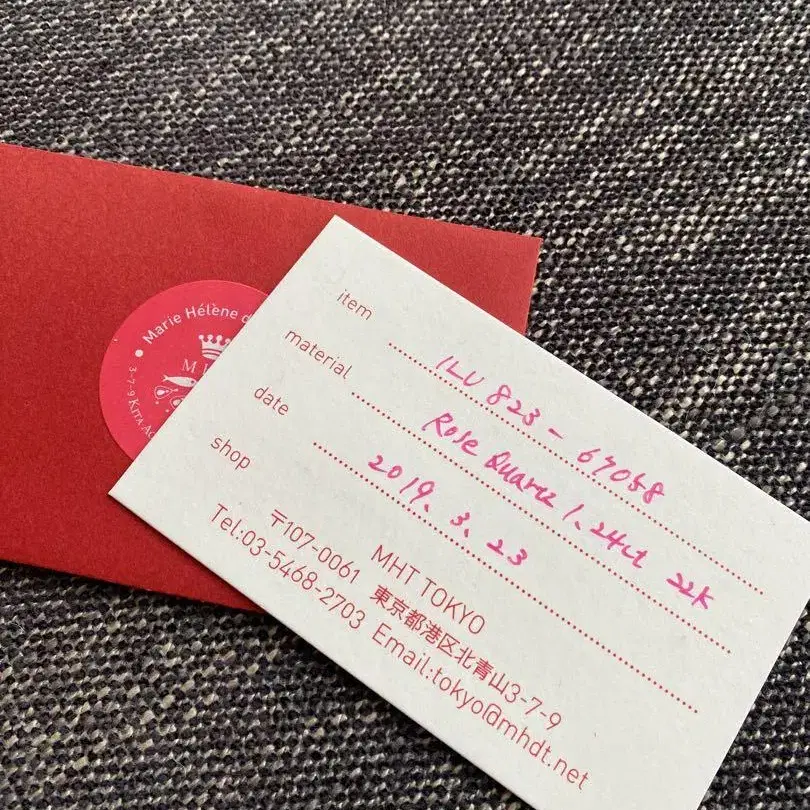 Marie Hélène d
3-7-9 KITA A
item ILU 823-67058
material Rose Quartz 1.24ct 22K
date 2019.3.23
shop
MHT TOKYO
〒107-0061 東京都港区北青山3-7-9
Tel:03-5468-2703 Email:tokyo@mhdt.net